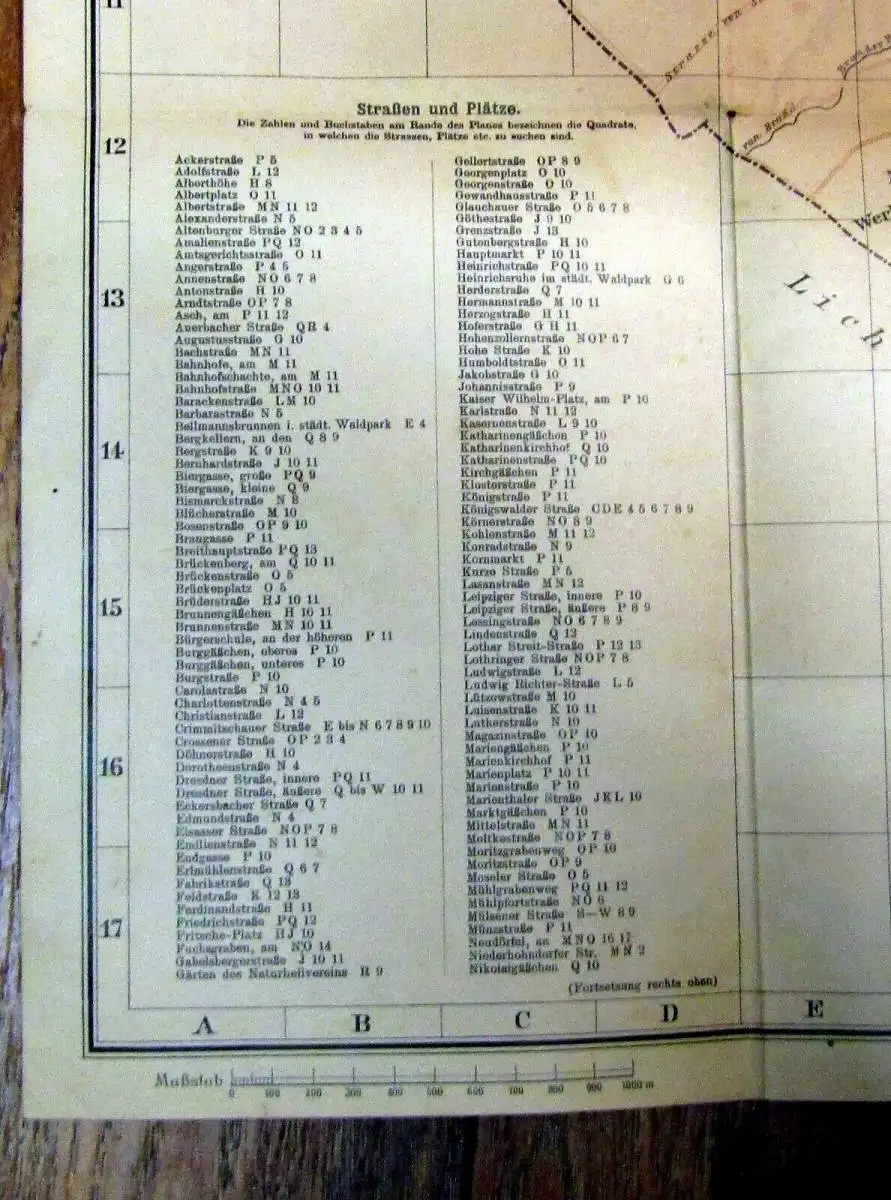 11
Strasse von
12
von Brand
Wer
13
Lich
14
15
16
17
Straßen und Plätze.
Die Zahlen und Buchstaben am Rande des Planes bezeichnen die Quadrate,
in welchen die Strassen, Plätze etc. zu suchen sind.
Ackerstraße P 5
Adolfstraße L 12
Alberthöhe H 8
Albertplatz O 11
Albertstraße MN 11 12
Alexanderstraße N 5
Altenburger Straße NO 2 3 4 5
Amalienstraße PQ 12
Amtsgerichtsstraße O 11
Angerstraße P 4 5
Annenstraße NO 6 7 8
Antonstraße H 10
Arndtstraße OP 7 8
Asch, am P 11 12
Auerbacher Straße QR 4
Augustusstraße O 10
Bachstraße MN 11
Bahnhofe, am M 11
Bahnhofschachte, am M 11
Bahnhofstraße MNO 10 11
Barackenstraße LM 10
Barbarastraße N 5
Bellmannsbrunnen i. städt. Waldpark E 4
Bergkellern, an den Q 8 9
Bergstraße K 9 10
Bernhardstraße J 10 11
Biergasse, große PQ 9
Biergasse, kleine Q 9
Bismarckstraße N 8
Blücherstraße M 10
Bosenstraße OP 9 10
Braugasse P 11
Breithauptstraße PQ 13
Brückenberg, am Q 10 11
Brückenstraße O 5
Brückenplatz O 5
Brüderstraße HJ 10 11
Brunnengäßchen H 10 11
Brunnenstraße MN 10 11
Bürgerschule, an der höheren P 11
Burggäßchen, oberes P 10
Burggäßchen, unteres P 10
Burgstraße P 10
Carolastraße N 10
Charlottenstraße N 4 5
Christianstraße L 12
Crimmitschauer Straße E bis N 6 7 8 9 10
Crossener Straße OP 2 3 4
Döhnerstraße H 10
Dorotheenstraße N 4
Dresdner Straße, innere PQ 11
Dresdner Straße, äußere Q bis W 10 11
Eckersbacher Straße Q 7
Edmundstraße N 4
Elsasser Straße NOP 7 8
Emilienstraße N 11 12
Endgasse P 10
Erlmühlenstraße Q 6 7
Fabrikstraße Q 13
Feldstraße K 12 13
Ferdinandstraße H 11
Friedrichstraße PQ 12
Fritsche-Platz HJ 10
Fuchsgraben, am NO 14
Gabelsbergerstraße J 10 11
Gärten des Naturheilvereins R 9
Gellertstraße OP 8 9
Georgenplatz O 10
Georgenstraße O 10
Gewandhausstraße P 11
Glauchauer Straße O 5 6 7 8
Göthestraße J 9 10
Grenzstraße J 13
Gutenbergstraße H 10
Hauptmarkt P 10 11
Heinrichstraße PQ 10 11
Heinrichsruhe im städt. Waldpark G 6
Herderstraße Q 7
Hermannstraße M 10 11
Herzogstraße H 11
Hoferstraße G H 11
Hohenzollernstraße NOP 6 7
Hohe Straße K 10
Humboldtstraße O 11
Jakobstraße G 10
Johannisstraße P 9
Kaiser Wilhelm-Platz, am P 10
Karlstraße N 11 12
Kasernenstraße L 9 10
Katharinengäßchen P 10
Katharinenkirchhof Q 10
Katharinenstraße PQ 10
Kirchgäßchen P 11
Klosterstraße P 11
Königstraße P 11
Königswalder Straße CDE 4 5 6 7 8 9
Körnerstraße NO 8 9
Kohlenstraße M 11 12
Konradstraße N 9
Kornmarkt P 11
Kurze Straße P 5
Lasanstraße MN 12
Leipziger Straße, innere P 10
Leipziger Straße, äußere P 8 9
Lessingstraße NO 6 7 8 9
Lindenstraße Q 13
Lothar Streit-Straße P 12 13
Lothringer Straße NOP 7 8
Ludwigstraße L 12
Ludwig Richter-Straße L 5
Lützowstraße M 10
Luisenstraße K 10 11
Lutherstraße N 10
Magazinstraße OP 10
Mariengäßchen P 10
Marienkirchhof P 11
Marienplatz P 10 11
Marienstraße P 10
Marienthaler Straße JKL 10
Marktgäßchen P 10
Mittelstraße MN 11
Moltkestraße NOP 7 8
Moritzgrabenweg OP 10
Moritzstraße OP 9
Moseler Straße O 5
Mühlgrabenweg PQ 11 12
Mühlpfortstraße NO 6
Mülsener Straße S–W 8 9
Münzstraße P 11
Neudörfel, an MNO 16 17
Niederhohndorfer Str. MN 2
Nikolaigäßchen Q 10
(Fortsetzung rechts oben)
A B C D E
Maßstab
0 100 200 300 400 500 600 700 800 900 1000 m